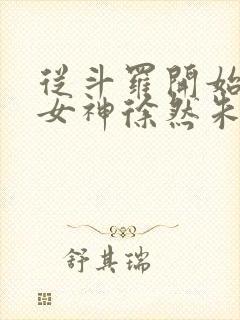 從斗羅開始
女神徐然朱
舒其瑞